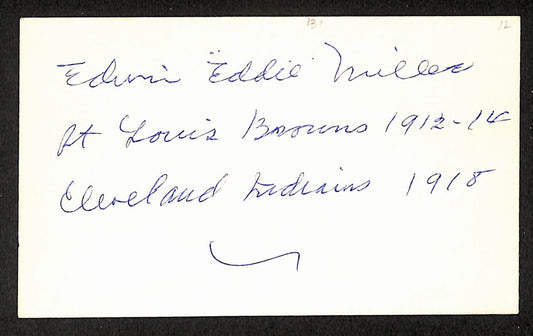 131 12
Edwin "Eddie" Miller
St Louis Browns 1912-14
Cleveland Indians 1918